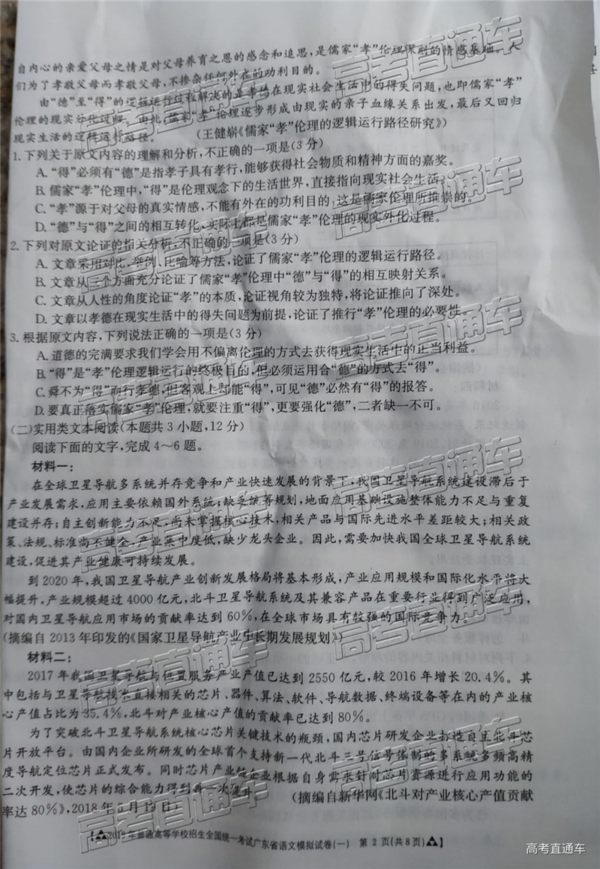 自内心的亲爱父母之情是对父母养育之恩的感念和追思，是儒家“孝”伦理深刻的情感基础。人
们为了孝敬父母而孝敬父母，不掺杂任何外在的功利目的。
由“德”至“得”的逻辑运行过程解决的是孝德在现实社会生活中的得失问题，也即儒家“孝”
伦理的现实外化过程。由此，儒家“孝”伦理逐步形成由现实的亲子血缘关系出发，最后又回归
现实生活的逻辑运行路径。
（王健崭《儒家“孝”伦理的逻辑运行路径研究》）
1.下列关于原文内容的理解和分析，不正确的一项是(3分)
A.“得”必须有“德”是指孝子具有孝行，能够获得社会物质和精神方面的嘉奖。
B.儒家“孝”伦理中，“得”是伦理观念下的生活世界，直接指向现实社会生活。
C.“孝”源于对父母的真实情感，不能有外在的功利目的，这是儒家伦理所推崇的。
D.“德”与“得”之间的相互转化，实际上都是儒家“孝”伦理的现实外化过程。
2.下列对原文论证的相关分析，不正确的一项是(3分)
A.文章采用对比、举例、比喻等方法，论证了儒家“孝”伦理的逻辑运行路径。
B.文章从三个方面充分论证了儒家“孝”伦理中“德”与“得”的相互映射关系。
C.文章从人性的角度论证“孝”的本质，论证视角较为独特，将论证推向了深处。
D.文章以孝德在现实生活中的得失问题为前提，论证了推行“孝”伦理的必要性。
3.根据原文内容，下列说法正确的一项是(3分)
A.道德的完满要求我们学会用不偏离伦理的方式去获得现实生活中的正当利益。
B.“得”是“孝”伦理逻辑运行的终极目的，但必须运用合“德”的方式去“得”。
C.舜不为“得”而行孝德，但客观上却能“得”，可见“德”必然有“得”的报答。
D.要真正落实儒家“孝”伦理，就要注重“得”，更要强化“德”，二者缺一不可。
(二)实用类文本阅读(本题共3小题，12分)
阅读下面的文字，完成4～6题。
材料一：
在全球卫星导航多系统并存竞争和产业快速发展的背景下，我国卫星导航系统建设滞后于
产业发展需求，应用主要依赖国外系统；缺乏统筹规划，地面应用基础设施整体能力不足与重复
建设并存；自主创新能力不足，尚未掌握核心技术，相关产品与国际先进水平差距较大；相关政
策、法规、标准尚不健全，产业集中度低，缺少龙头企业。因此，需要加快我国全球卫星导航系统
建设，促进其产业健康可持续发展。
到2020年，我国卫星导航产业创新发展格局将基本形成，产业应用规模和国际化水平将大
幅提升，产业规模超过4000亿元，北斗卫星导航系统及其兼容产品在重要行业得到广泛应用，
对国内卫星导航应用市场的贡献率达到60%，在全球市场具有较强的国际竞争力。
(摘编自2013年印发的《国家卫星导航产业中长期发展规划》)
材料二：
2017年我国卫星导航与位置服务产业产值已达到2550亿元，较2016年增长20.4%。其
中包括与卫星导航技术直接相关的芯片、器件、算法、软件、导航数据、终端设备等在内的产业核
心产值占比为35.4%，北斗对产业核心产值的贡献率已达到80%。
为了突破北斗卫星导航系统核心芯片关键技术的瓶颈，国内芯片研发企业打造自主北斗芯
片开放平台。由国内企业所研发的全球首个支持新一代北斗三号信号体制的多系统多频高精
度导航定位芯片正式发布。同时芯片产业企业根据自身需求针对芯片资源进行应用功能的
二次开发，使芯片的综合能力得到进一步提升。(摘编自新华网《北斗对产业核心产值贡献
率达80%》，2018年 月19日)
【2019年普通高等学校招生全国统一考试广东省语文模拟试卷(一) 第2页(共8页)】
高考直通车